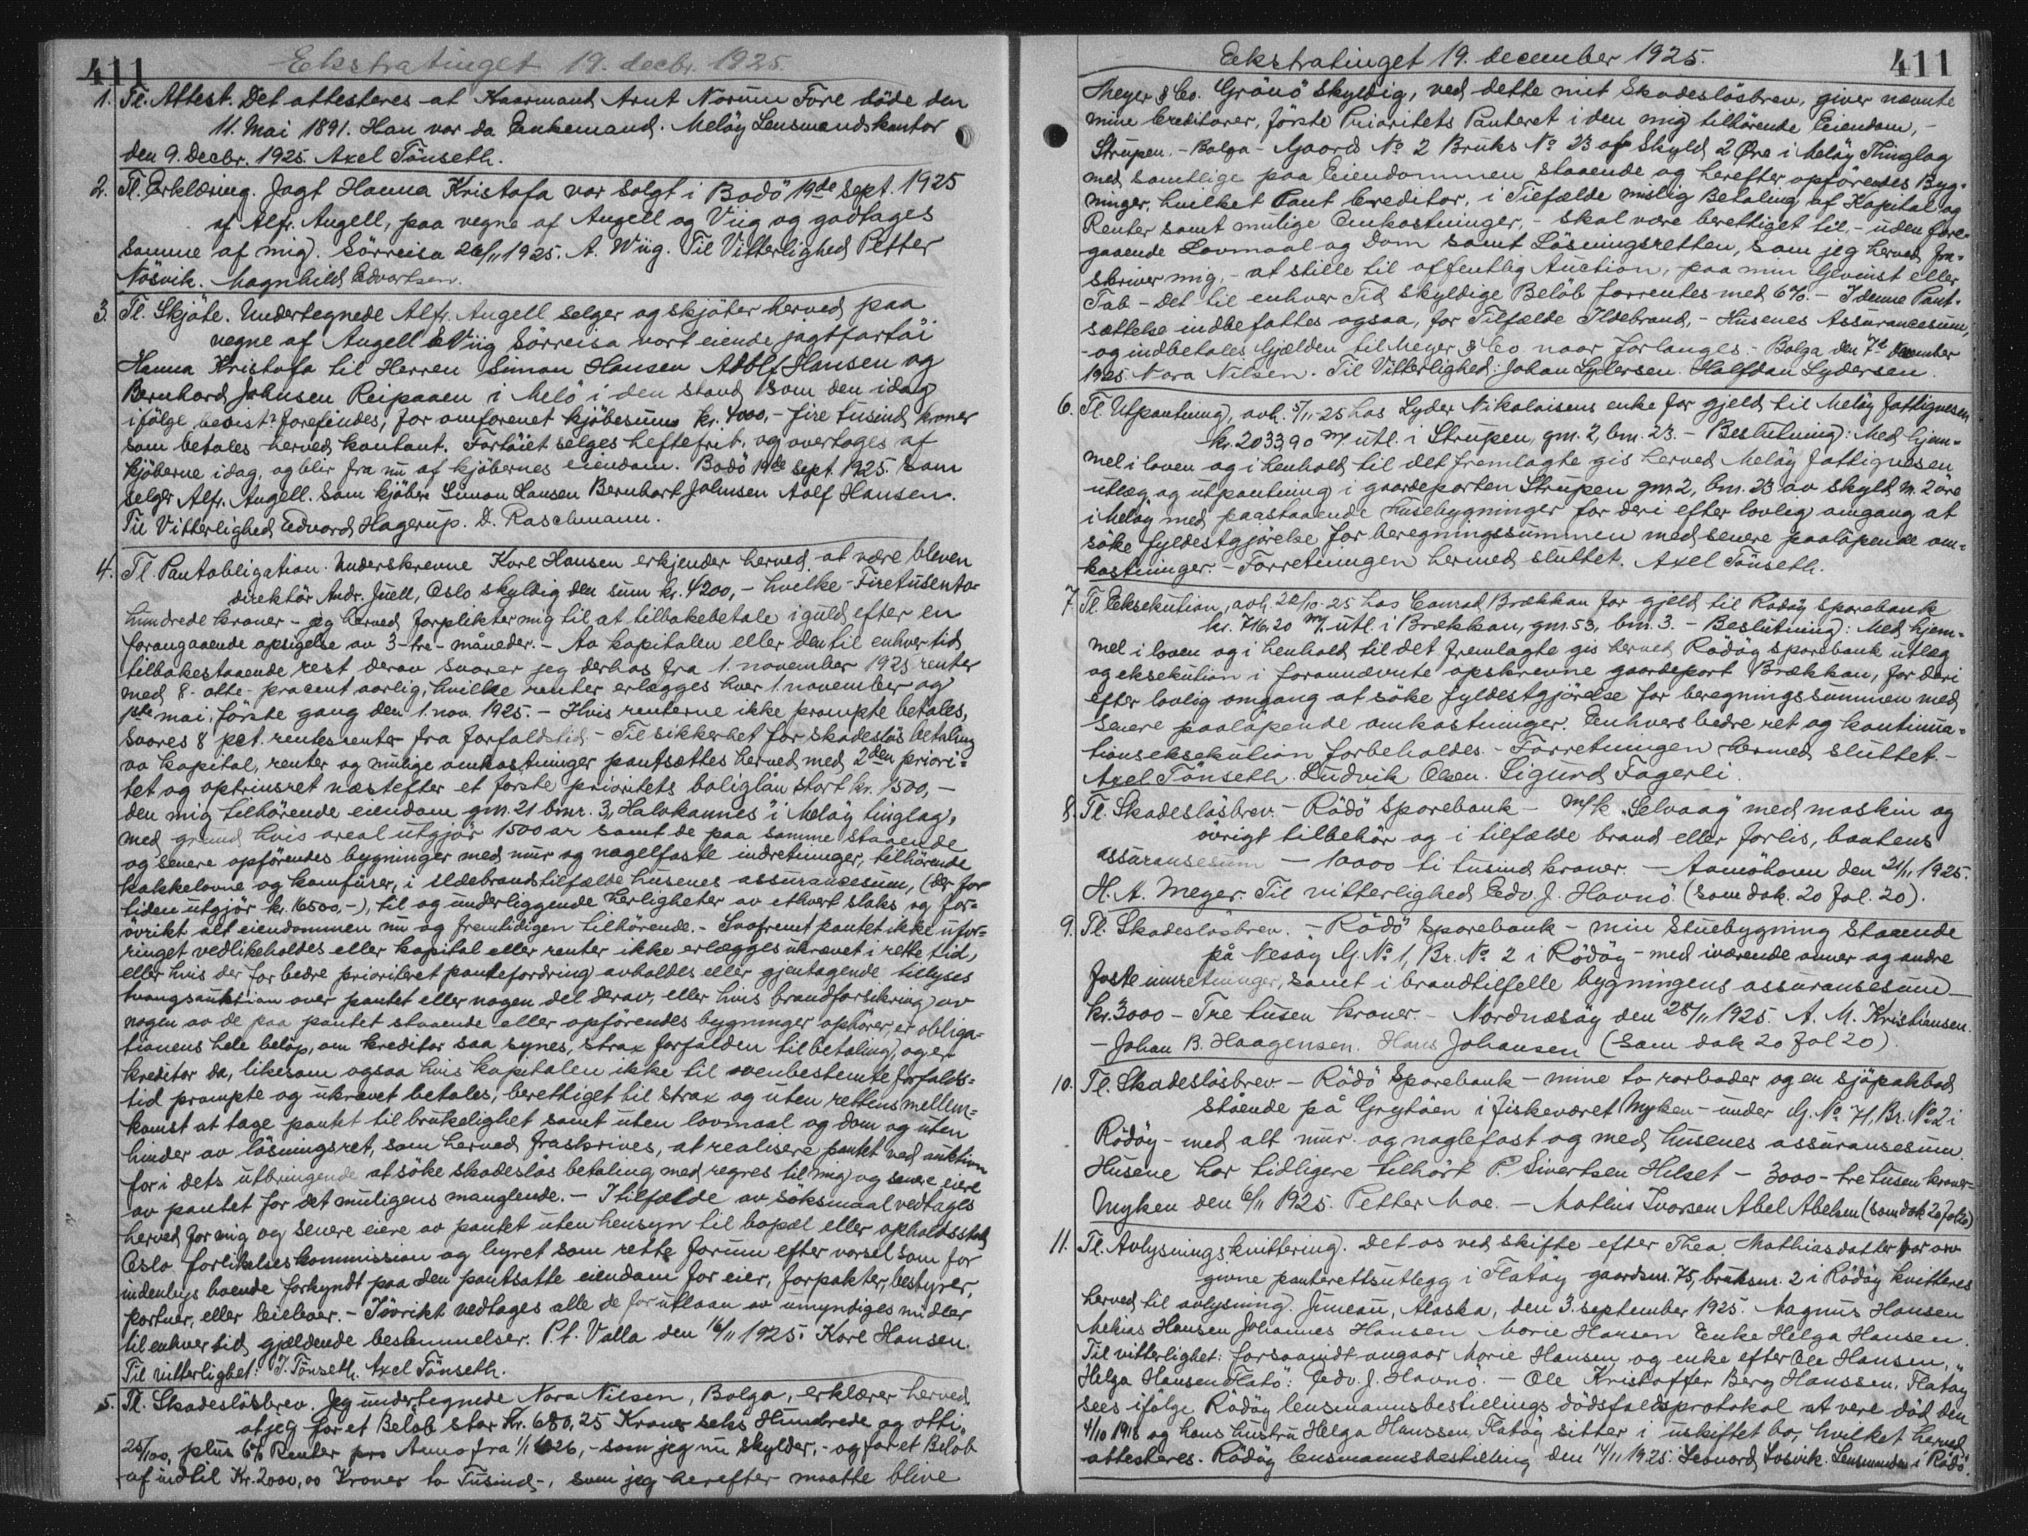 411
Ekstratinget 19. decbr. 1925.
1. Tl. Attest. Det attesteres at Kaarmand Arnt Norum Fore döde den
11. Mai 1891. Han var da Enkemand. Melöy Lensmandskontor
den 9. Decbr. 1925. Axel Tönseth.
2. Tl. Erklæring. Jagt Hanna Kristofa var solgt i Bodö 19de sept. 1925
af Alfr. Angell, paa vegne af Angell og Viig og godtages
samme af mig. Sörreisa 26/11 1925. A. Wiig. Til Vitterlighed Petter
Nösvik. Magnhild Edvartsen.
3. Tl. Skjöte. Undertegnede Alfr. Angell selger og skjöter herved paa
vegne af Angell & Viig Sörreisa vort eiende jagtfartöi
Hanna Kristofa til Herren Simon Hansen Adolf Hansen og
Bernhard Johnsen Reipaaen i Melö i den stand som den idag
ifölge forefindes, for omforenet kjöbesum kr. 4000,- fire tusind kroner
som betales herved kontant. Fartöiet selges heftefrit, og overtages af
kjöberne idag, og blir fra nu af kjöbernes eiendom. Bodö 19de sept. 1925. Som
selger Alfr. Angell. Som kjöber Simon Hansen Bernhart Johnsen Aolf Hansen.
Til Vitterlighed Edvard Hagerup. D. Raschmann.
4. Tl. Pantobligation. Underskrevne Kore Hansen erkjender herved, at være bleven
direktör Andr. Juell, Oslo skyldig den sum kr. 4200,- hvilke - Firetusento-
hundrede kroner - jeg herved forplikter mig til at tilbakebetale i guld efter en
forangaaende opsigelse av 3-tre-måneder. - Av kapitalen eller den til enhver tid
tilbakestaaende rest derav svarer jeg derhos fra 1. november 1925 renter
med 8 - otte - procent aarlig, hvilke renter erlægges hver 1. november og
1ste mai, förste gang den 1. nov. 1925. - Hvis renterne ikke prompte betales,
svares 8 pct. rentesrenter fra forfaldstid - Til sikkerhet for skadeslös betaling
av kapital, renter og mulige omkostninger pantsættes herved med 2den priori-
tet og optrinsret næstefter et förste prioritets boliglån stort kr. 1500,-
den mig tilhörende eiendom gnr. 21 bnr. 3, "Halvkannes" i Melöy tinglag,
med grund hvis areal utgjör 1500 ar samt de paa samme staaende
og senere opförendes bygninger med mur og nagelfaste indretninger, tilhörende
kakkelovne og komfurer, i ildebrandstilfælde husenes assurancesum, (der for
tiden utgjör kr. 16500,-), til og underliggende herligheter av ethvert slaks og for-
övrikt alt eiendommen nu og fremtidigen tilhörende. - Saafremt pantet ikke ufor-
ringet vedlikeholdes eller kapital eller renter ikke erlægges ukrævet i rette tid,
eller hvis der for bedre prioritert pantefordring avholdes eller gjentagende tillyses
tvangsauktion over pantet eller nogen del derav, eller hvis brandforsikring av
nogen av de paa pantet staaende eller opförendes bygninger ophörer, er obliga-
tionens hele belöp, om kreditor saa synes, strax forfalden til betaling, og er
kreditor da, likesom ogsaa hvis kapitalen ikke til ovenbestemte forfalds-
tid prompte og ukrævet betales, berettiget til strax og uten rettens mellem-
komst at tage pantet til brukelighet samt uten lovmaal og dom og uten
hinder av lösningsret, som herved fraskrives, at realisere pantet ved auktion
for i dets utbringende at söke skadeslös betaling med regres til mig og senere eiere
av pantet for det muligens manglende. - I tilfælde av söksmaal vedtages
herved for mig og senere eiere av pantet uten hensyn til bopæl eller opholdssted
Oslo forlikelseskommission og byret som rette forum efter varsel som for
indenbys boende forkyndt paa den pantsatte eiendom for eier, forpakter, bestyrer,
portner, eller leieboer. - Iövrikt vedtages alle de for utlaan av umyndiges midler
til enhver tid gjældende bestemmelser. P.t. Valla den 16/11 1925. Kore Hansen.
Til vitterlighet: T. Tönseth. Axel Tönseth.
5. Tl. Skadeslösbrev. Jeg undertegnede Nora Nilsen, Bolga, erklærer herved
at jeg for et Belöb stor Kr. 680,25 Kroner seks Hundrede og otti,
25/100, plus 6% Renter pro Anno fra 1/1 1926, - som jeg nu skylder, - og for et Belöb
af indtil Kr. 2000,00 Kroner to Tusind-, som jeg herefter maatte blive
411
Ekstratinget 19. december 1925.
Meyer & Co. Grönö skyldig, ved dette mit Skadeslösbrev, giver nævnte
mine Creditorer, förste Prioritets Panteret i den mig tilhörende Eiendom, -
Strupen. - Bolga - Gaards No 2 Bruks No 23 af Skyld 2 Øre i Melöy Thinglag
med samtlige paa Eiendommen staaende og herefter opförendes Byg-
ninger, hvilket Pant Creditor, i Tilfælde mislig Betaling af Kapital og
Renter samt mulige Omkostninger, - skal være berettiget til, - uden fore-
gaaende Lovmaal og Dom samt Lösningsretten, som jeg herved fra-
skriver mig, - at stille til offentlig Auction, paa min Gevinst eller
Tab - Det til enhver Tid skyldige Belöb forrentes med 6%. - I denne Pant-
sættelse indbefattes ogsaa, for Tilfælde Ildebrand, - Husenes Assurancesum,
- og indbetales Gjælden til Meyer & Co naar forlanges. - Bolga den 7de December
1925. Nora Nilsen. Til Vitterlighed: Johan Lydersen. Halfdan Lydersen.
6. Tl. Utpantning, avh. 5/11-25 hos Lyder Nikolaisens enke for gjeld til Melöy fattigvesen
kr. 2033,90 m/ utl. i Strupen, gnr. 2, bnr. 23. - Beslutning: Med hjem-
mel i loven og i henhold til det fremlagte gis herved Melöy fattigvesen
utlæg og utpantning i gaardeparten Strupen gnr. 2, bnr. 23 av skyld m. 2 öre
i Melöy med paastaaende husebygninger for deri efter lovlig omgang at
söke fyldestgjörelse for beregningssummen med senere paalöpende om-
kostninger. - Forretningen hermed sluttet. Axel Tönseth.
7. Tl. Eksekution, avh. 20/10-25 hos Conrad Brækkan for gjeld til Rödöy sparebank
kr. 716,20 m/ utl. i Brækkan, gnr. 53, bnr. 3. - Beslutning: Med hjem-
mel i loven og i henhold til det fremlagte gis herved Rödöy sparebank utlæg
og eksekution i forannævnte opskrevne gaardepart Brækkan, for deri
efter lovlig omgang at söke fyldestgjörelse for beregningssummen med
senere paalöpende omkostninger. Enhvers bedre ret og kontinua-
tionseksekution forbeholdes. - Forretningen hermed sluttet. -
Axel Tönseth. Ludvik Olsen. Sigurd Fagerli.
8. Tl. Skadeslösbrev. - Rödö Sparebank - m/k "Selvaag" med maskin og
övrigt tilbehör og i tilfælde brand eller forlis, baatens
assuransesum - 10000 ti tusind kroner. - Aamöhavn den 21/11 1925.
H. A. Meyer. Til vitterlighed Edv. J. Havnö. (som dok. 20 fol. 20).
9. Tl. Skadeslösbrev. - Rödö Sparebank - min stuebygning staaende
på Nesöy G. No 1, Br. No 2 i Rödöy - med iværende ovner og andre
faste innretninger, samt i brandtilfelle bygningens assuransesum -
kr. 3000 - Tre tusen kroner. - Nordnæsöy den 28/11 1925. A. M. Kristiansen.
- Johan B. Haagensen. Hans Johansen (som dok 20 fol 20).
10. Tl. Skadeslösbrev - Rödö Sparebank - mine to rorboder og en sjöpakbod
stående på Grytöen i fiskeværet Myken - under G. No 71, Br. No 2 i
Rödöy - med alt mur og naglefast og med husenes assuransesum.
Husene har tidligere tilhört P. Sivertsen Hilset - 3000 - tre tusen kroner -
Myken den 6/11 1925. Petter Moe. - Mathis Ivarsen Abel Abelsen (som dok 20 fol 20)
11. Tl. Avlysningskvittering. Det os ved skifte efter Thea Mathiasdatter for arv
givne panterettsutlegg i Flatöy gaardsnr. 75, bruksnr. 2 i Rödöy kvitteres
herved til avlysning. Juneau, Alaska, den 3. september 1925. Magnus Hansen
Mekias Hansen Johannes Hansen Marie Hansen Enke Helga Hansen.
Til vitterlighet: forsaavidt angaar Marie Hansen og enke efter Ole Hansen,
Helga Hansen Flatö: Edv. J. Havnö. - Ole Kristoffer Berg Hanssen, Flatöy
sees ifölge Rödöy lensmannsbestillings dödsfaldsprotokol at vere död den
4/10 1918 og hans hustru Helga Hanssen, Flatöy sitter i uskiftet bo, hvilket herved
attesteres. Rödöy lensmannsbestilling den 14/11 1925. Leonard Losvik. Lensmanden i Rödö.